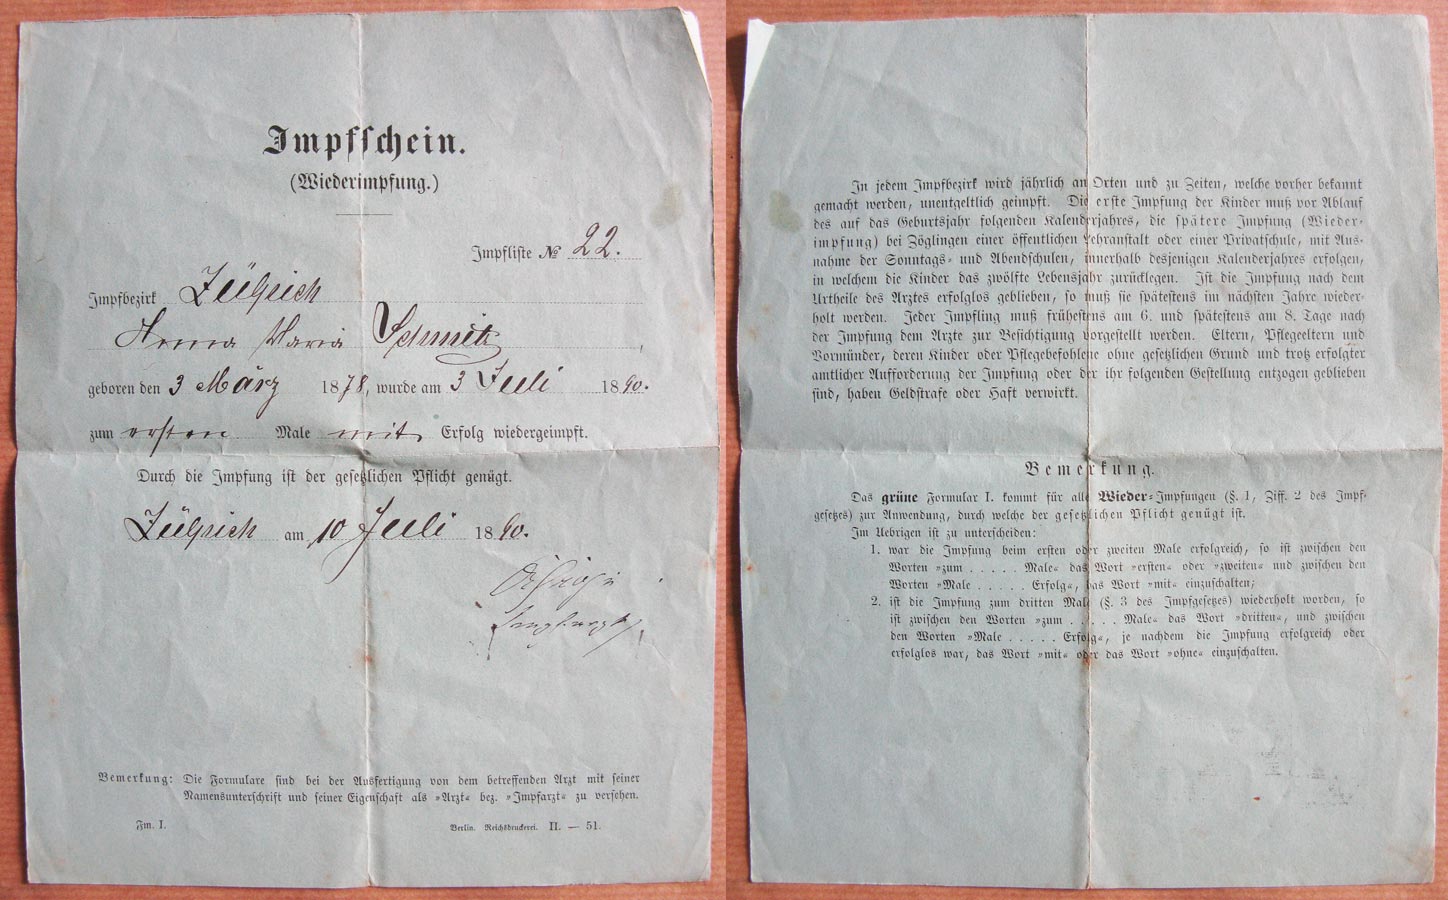 Impfschein.
(Wiederimpfung.)
Impfliste № 22.
Impfbezirk Zülpich
Anna Maria Schmitz,
geboren den 3 März 1878, wurde am 3 Juli 1890.
zum ersten Male mit Erfolg wiedergeimpft.
Durch die Impfung ist der gesetzlichen Pflicht genügt.
Zülpich am 10 Juli 1890.
Impfarzt
Bemerkung: Die Formulare sind bei der Ausfertigung von dem betreffenden Arzt mit seiner
Namensunterschrift und seiner Eigenschaft als »Arzt« bez. »Impfarzt« zu versehen.
Fm. I.
Berlin. Reichsdruckerei. II. — 51.
In jedem Impfbezirk wird jährlich an Orten und zu Zeiten, welche vorher bekannt
gemacht werden, unentgeltlich geimpft. Die erste Impfung der Kinder muß vor Ablauf
des auf das Geburtsjahr folgenden Kalenderjahres, die spätere Impfung (Wieder-
impfung) bei Zöglingen einer öffentlichen Lehranstalt oder einer Privatschule, mit Aus-
nahme der Sonntags- und Abendschulen, innerhalb desjenigen Kalenderjahres erfolgen,
in welchem die Kinder das zwölfte Lebensjahr zurücklegen. Ist die Impfung nach dem
Urtheile des Arztes erfolglos geblieben, so muß sie spätestens im nächsten Jahre wieder-
holt werden. Jeder Impfling muß frühestens am 6. und spätestens am 8. Tage nach
der Impfung dem Arzte zur Besichtigung vorgestellt werden. Eltern, Pflegeeltern und
Vormünder, deren Kinder oder Pflegebefohlene ohne gesetzlichen Grund und trotz erfolgter
amtlicher Aufforderung der Impfung oder der ihr folgenden Gestellung entzogen geblieben
sind, haben Geldstrafe oder Haft verwirkt.
Bemerkung.
Das grüne Formular I. kommt für alle Wieder-Impfungen (§. 1, Ziff. 2 des Impf-
gesetzes) zur Anwendung, durch welche der gesetzlichen Pflicht genügt ist.
Im Uebrigen ist zu unterscheiden:
1. war die Impfung beim ersten oder zweiten Male erfolgreich, so ist zwischen den
Worten »zum . . . . . Male« das Wort »ersten« oder »zweiten« und zwischen den
Worten »Male . . . . . Erfolg«, das Wort »mit« einzuschalten;
2. ist die Impfung zum dritten Male (§. 3 des Impfgesetzes) wiederholt worden, so
ist zwischen den Worten »zum . . . . . Male« das Wort »dritten«, und zwischen
den Worten »Male . . . . . Erfolg«, je nachdem die Impfung erfolgreich oder
erfolglos war, das Wort »mit« oder das Wort »ohne« einzuschalten.